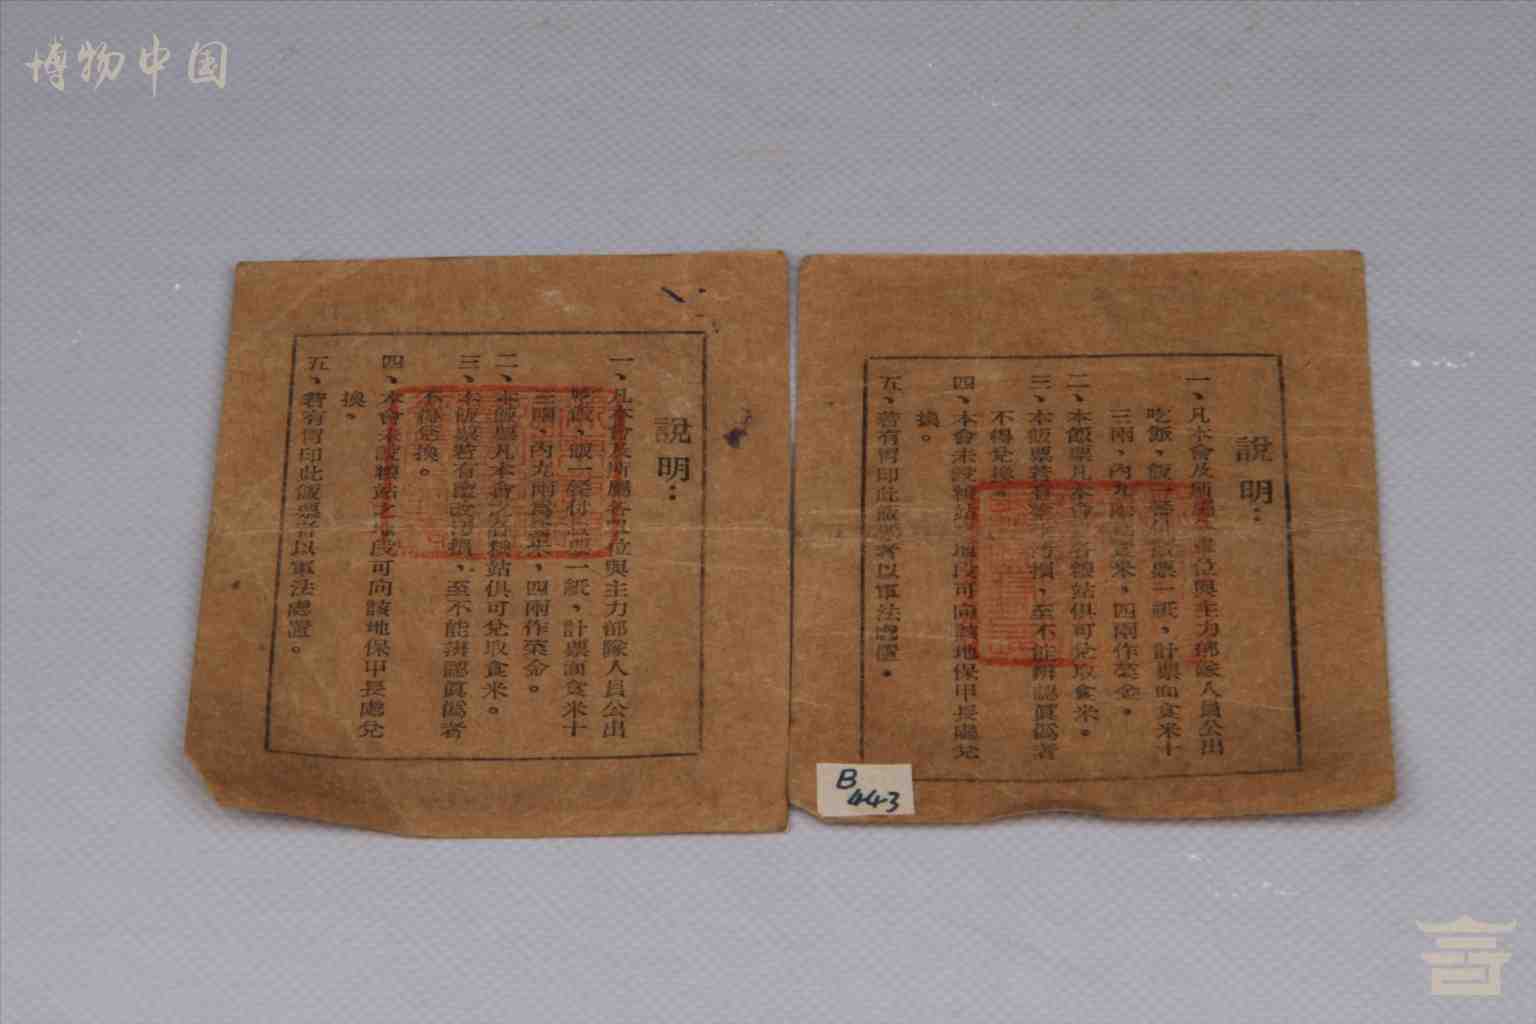 博物中国
說明：
一、凡本會及所屬各單位與主力部隊人員公出
吃飯，飯一餐付飯票一紙，計票面食米十
三兩，內九兩為食米，四兩作菜金。
二、本飯票凡本會之各糧站俱可兌取食米。
三、本飯票若有塗改汚損，至不能辨認眞僞者
不得兌換。
四、本會未設糧站之地段可向該地保甲長處兌
換。
五、若有冒印此飯票者以軍法處置。
說明：
一、凡本會及所屬各單位與主力部隊人員公出
吃飯，飯一餐付飯票一紙，計票面食米十
三兩，內九兩為食米，四兩作菜金。
二、本飯票凡本會之各糧站俱可兌取食米。
三、本飯票若有塗改汚損，至不能辨認眞僞者
不得兌換。
四、本會未設糧站之地段可向該地保甲長處兌
換。
五、若有冒印此飯票者以軍法處置。
B
443